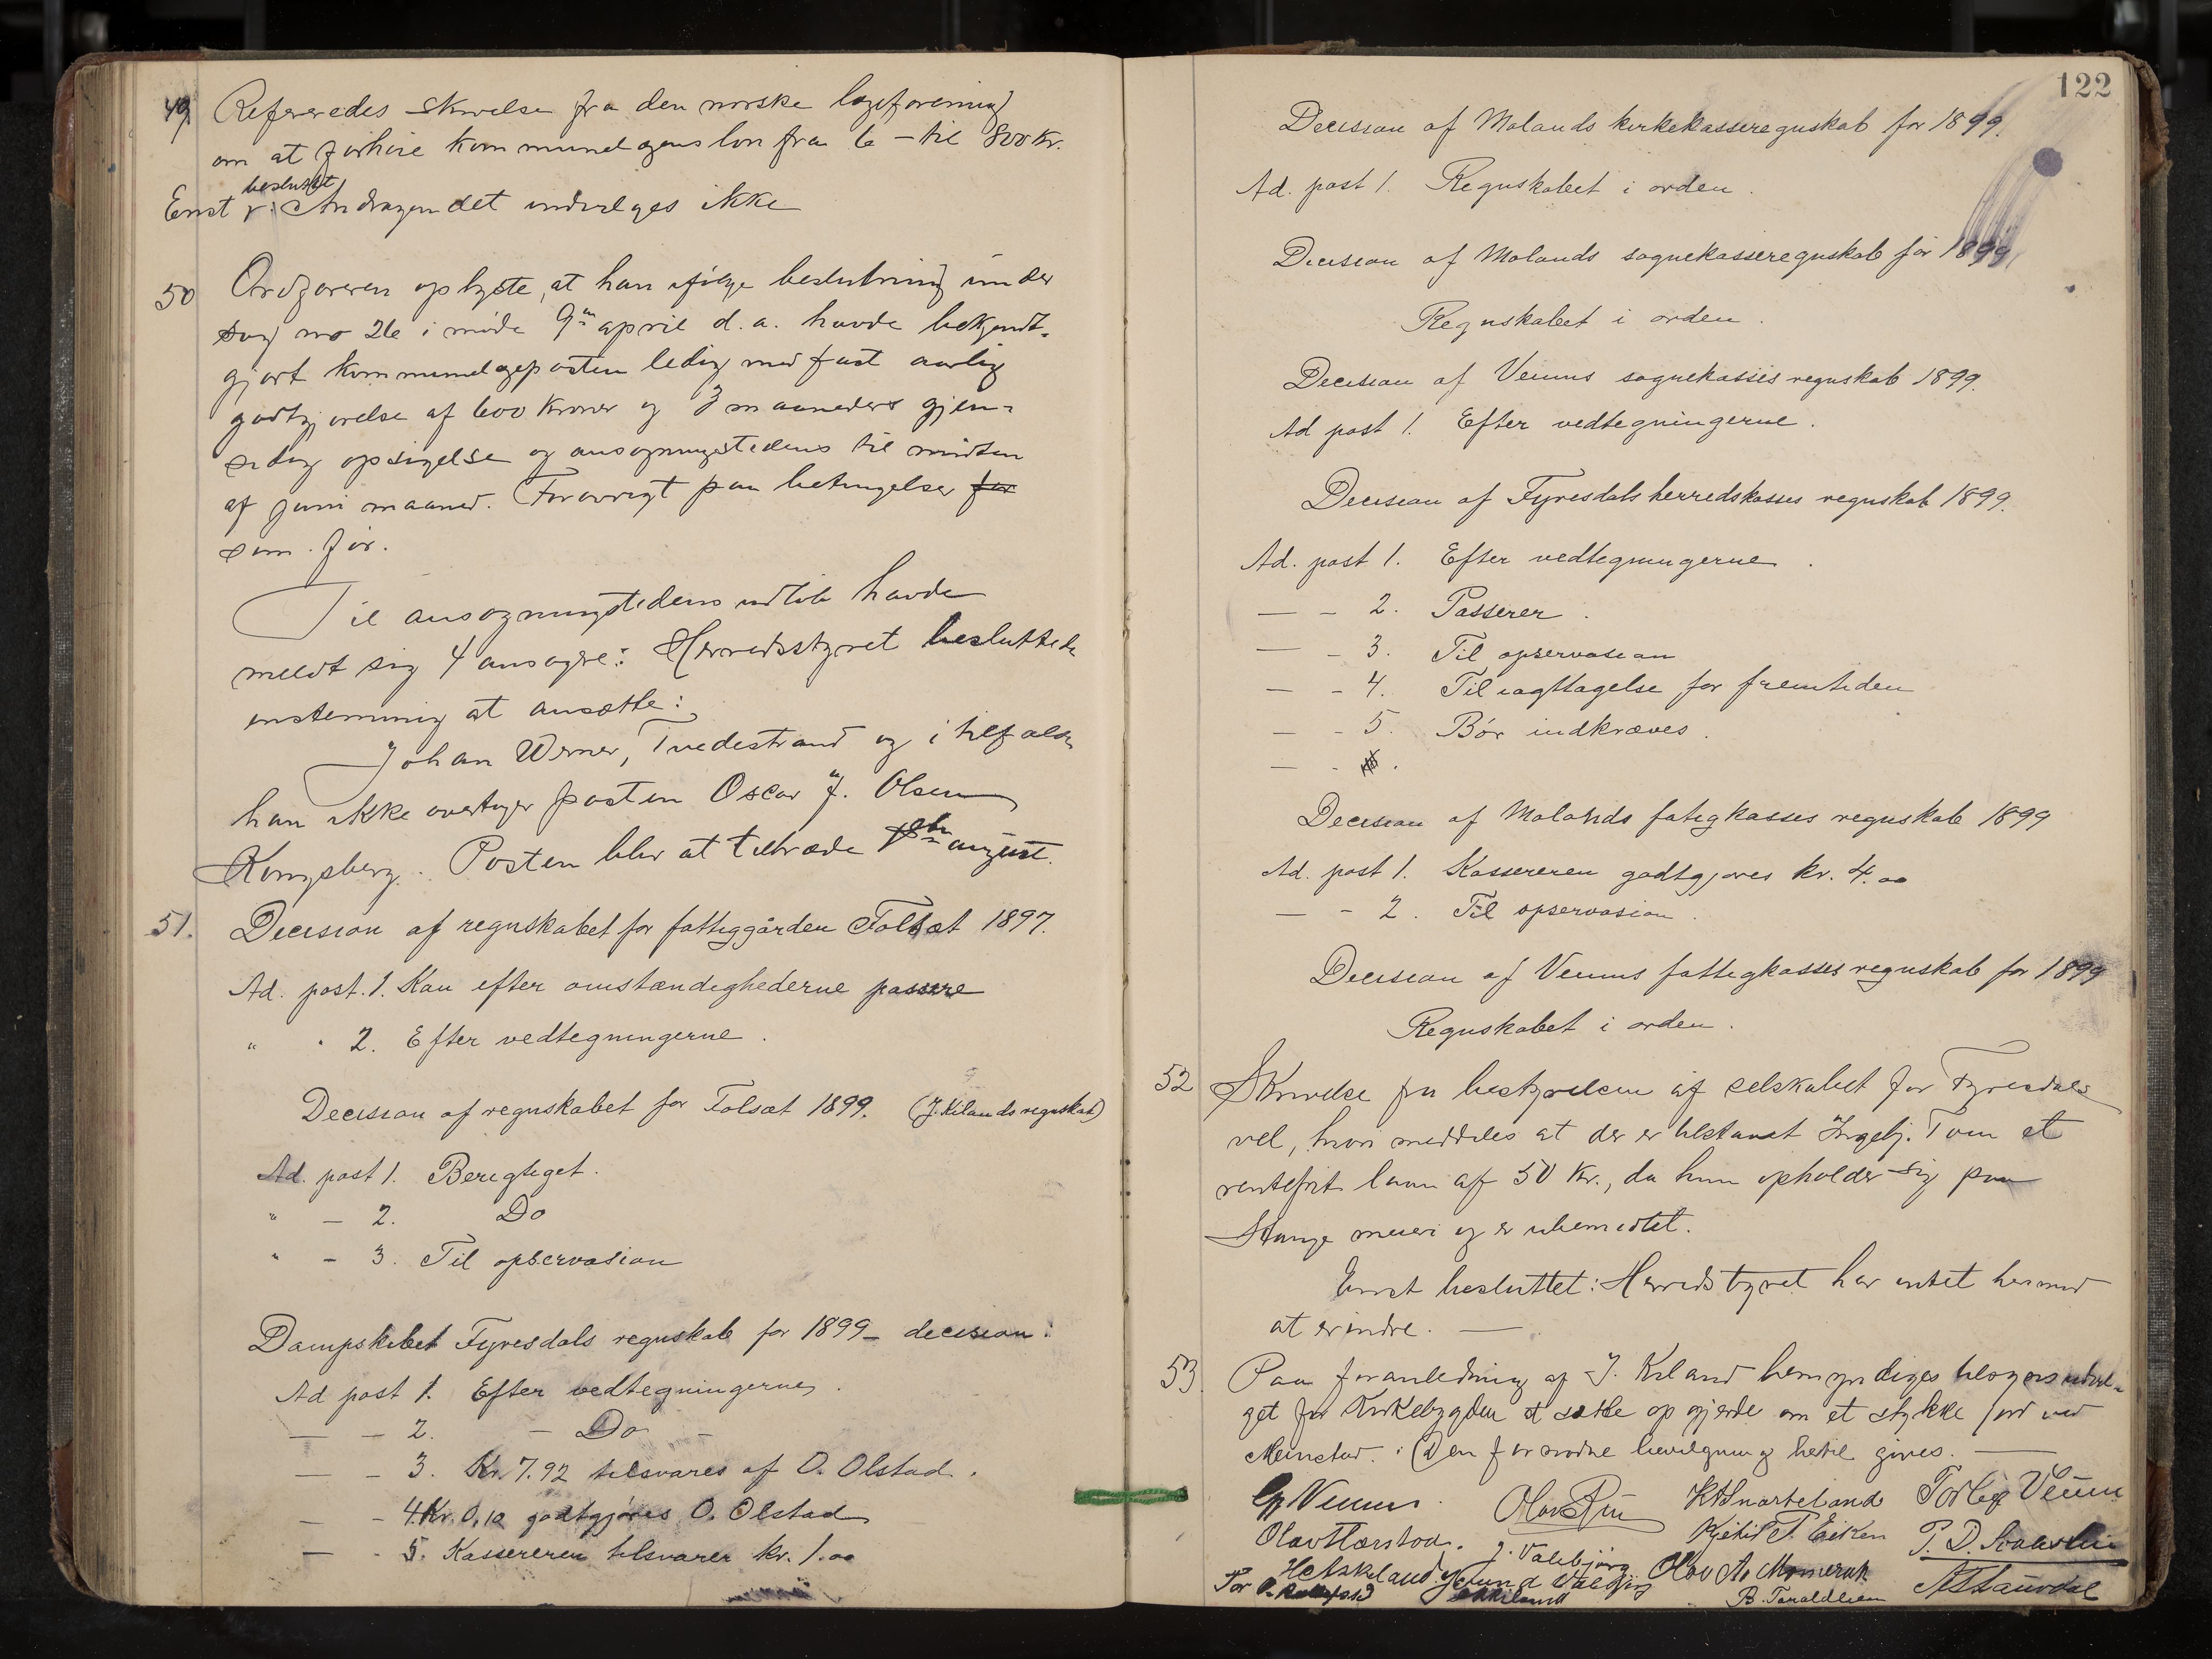 49. Refereredes skrivelse fra den norske lægeforening
om at forhøie kommunelægens løn fra 6 – til 800 Kr.
besluttet
Enst : Andragendet indvilges ikke
50 Ordføreren oplyste, at han ifølge beslutning under
sag no 26 i møde 9de april d.a. havde bekjendt-
gjort kommunelægeposten ledig med fast aarlig
godtgjørelse af 600 Kroner og 3 maaneders gjen-
sidig opsigelse og ansøgningstidens til midten
af juni maaned. Forøvrigt paa betingelser for
som før.
Til ansøgningstidens udløb havde
meldt sig 4 ansøgere: Herredsstyret besluttede
enstemmig at ansætte:
Johan Werner, Tvedestrand og i tilfælde
han ikke overtager posten Oscar J. Olsen
Kongsberg. Posten blir at tiltræde august.
51. Decision af regnskabet for fattiggården Folsæt 1897.
Ad. post. 1. Kan efter omstændighederne passere
" " 2. Efter vedtegningerne.
Decision af regnskabet for Folsæt 1899. (J. Kilands regnskab)
Ad. post 1. Berigtiget.
" – 2. Do
" – 3. Til opservasion
Dampskibet Fyresdals regnskab for 1899 – decision:
Ad post 1. Efter vedtegningerne.
— – 2. – Do –
— – 3. Kr. 7.92 tilsvares af O. Olstad.
— – 4. Kr. 0,10 godtgjøres O. Olstad
— – 5. Kassereren tilsvarer kr. 1.00
122
Decision af Molands kirkekasseregnskab for 1899.
Ad. post 1. Regnskabet i orden.
Decision af Molands sognekasseregnskab for 1899,
Regnskabet i orden.
Decision af Veums sognekasses regnskab 1899.
Ad post 1. Efter vedtegningerne.
Decision af Fyresdals herredskasses regnskab 1899.
Ad. post 1. Efter vedtegningerne.
— – 2. Passerer.
— – 3. Til opservasion
— – 4. Til iagttagelse for fremtiden
— – 5. Bør indkræves.
— – .
Decision af Molands fatigkasses regnskab 1899
Ad. post 1. Kassereren godtgjøres kr. 4.00
— – 2. Til opservasion.
Decision af Veums fattigkasses regnskab for 1899
Regnskabet i orden.
52 Skrivelse fra bestyrelsen af selskabet for Fyresdals
vel, hvori meddeles at der er tilstaaet Ingebj. Tveu et
rentefrit laan af 50 Kr., da hun opholder sig paa
Stange meieri og er ubemidlet.
Enst besluttet: Herredstyret har intet hermed
at erindre. —
53. Paa foranledning af J. Kiland bemyndiges tilsynsudval-
get for Kirkebygden at sætte op gjerde om et stykke jord ved
Meinstad. : Den fornødne bevilgning hertil gives. —
Veum. Olav Rui K H Snarteland Torleif Veum
Olav Harstad. J. Valebjørg Kjetil T. Eiken P. D.
H Askeland Olav A. Momrak
Tor O. J Kiland B. Taraldlien